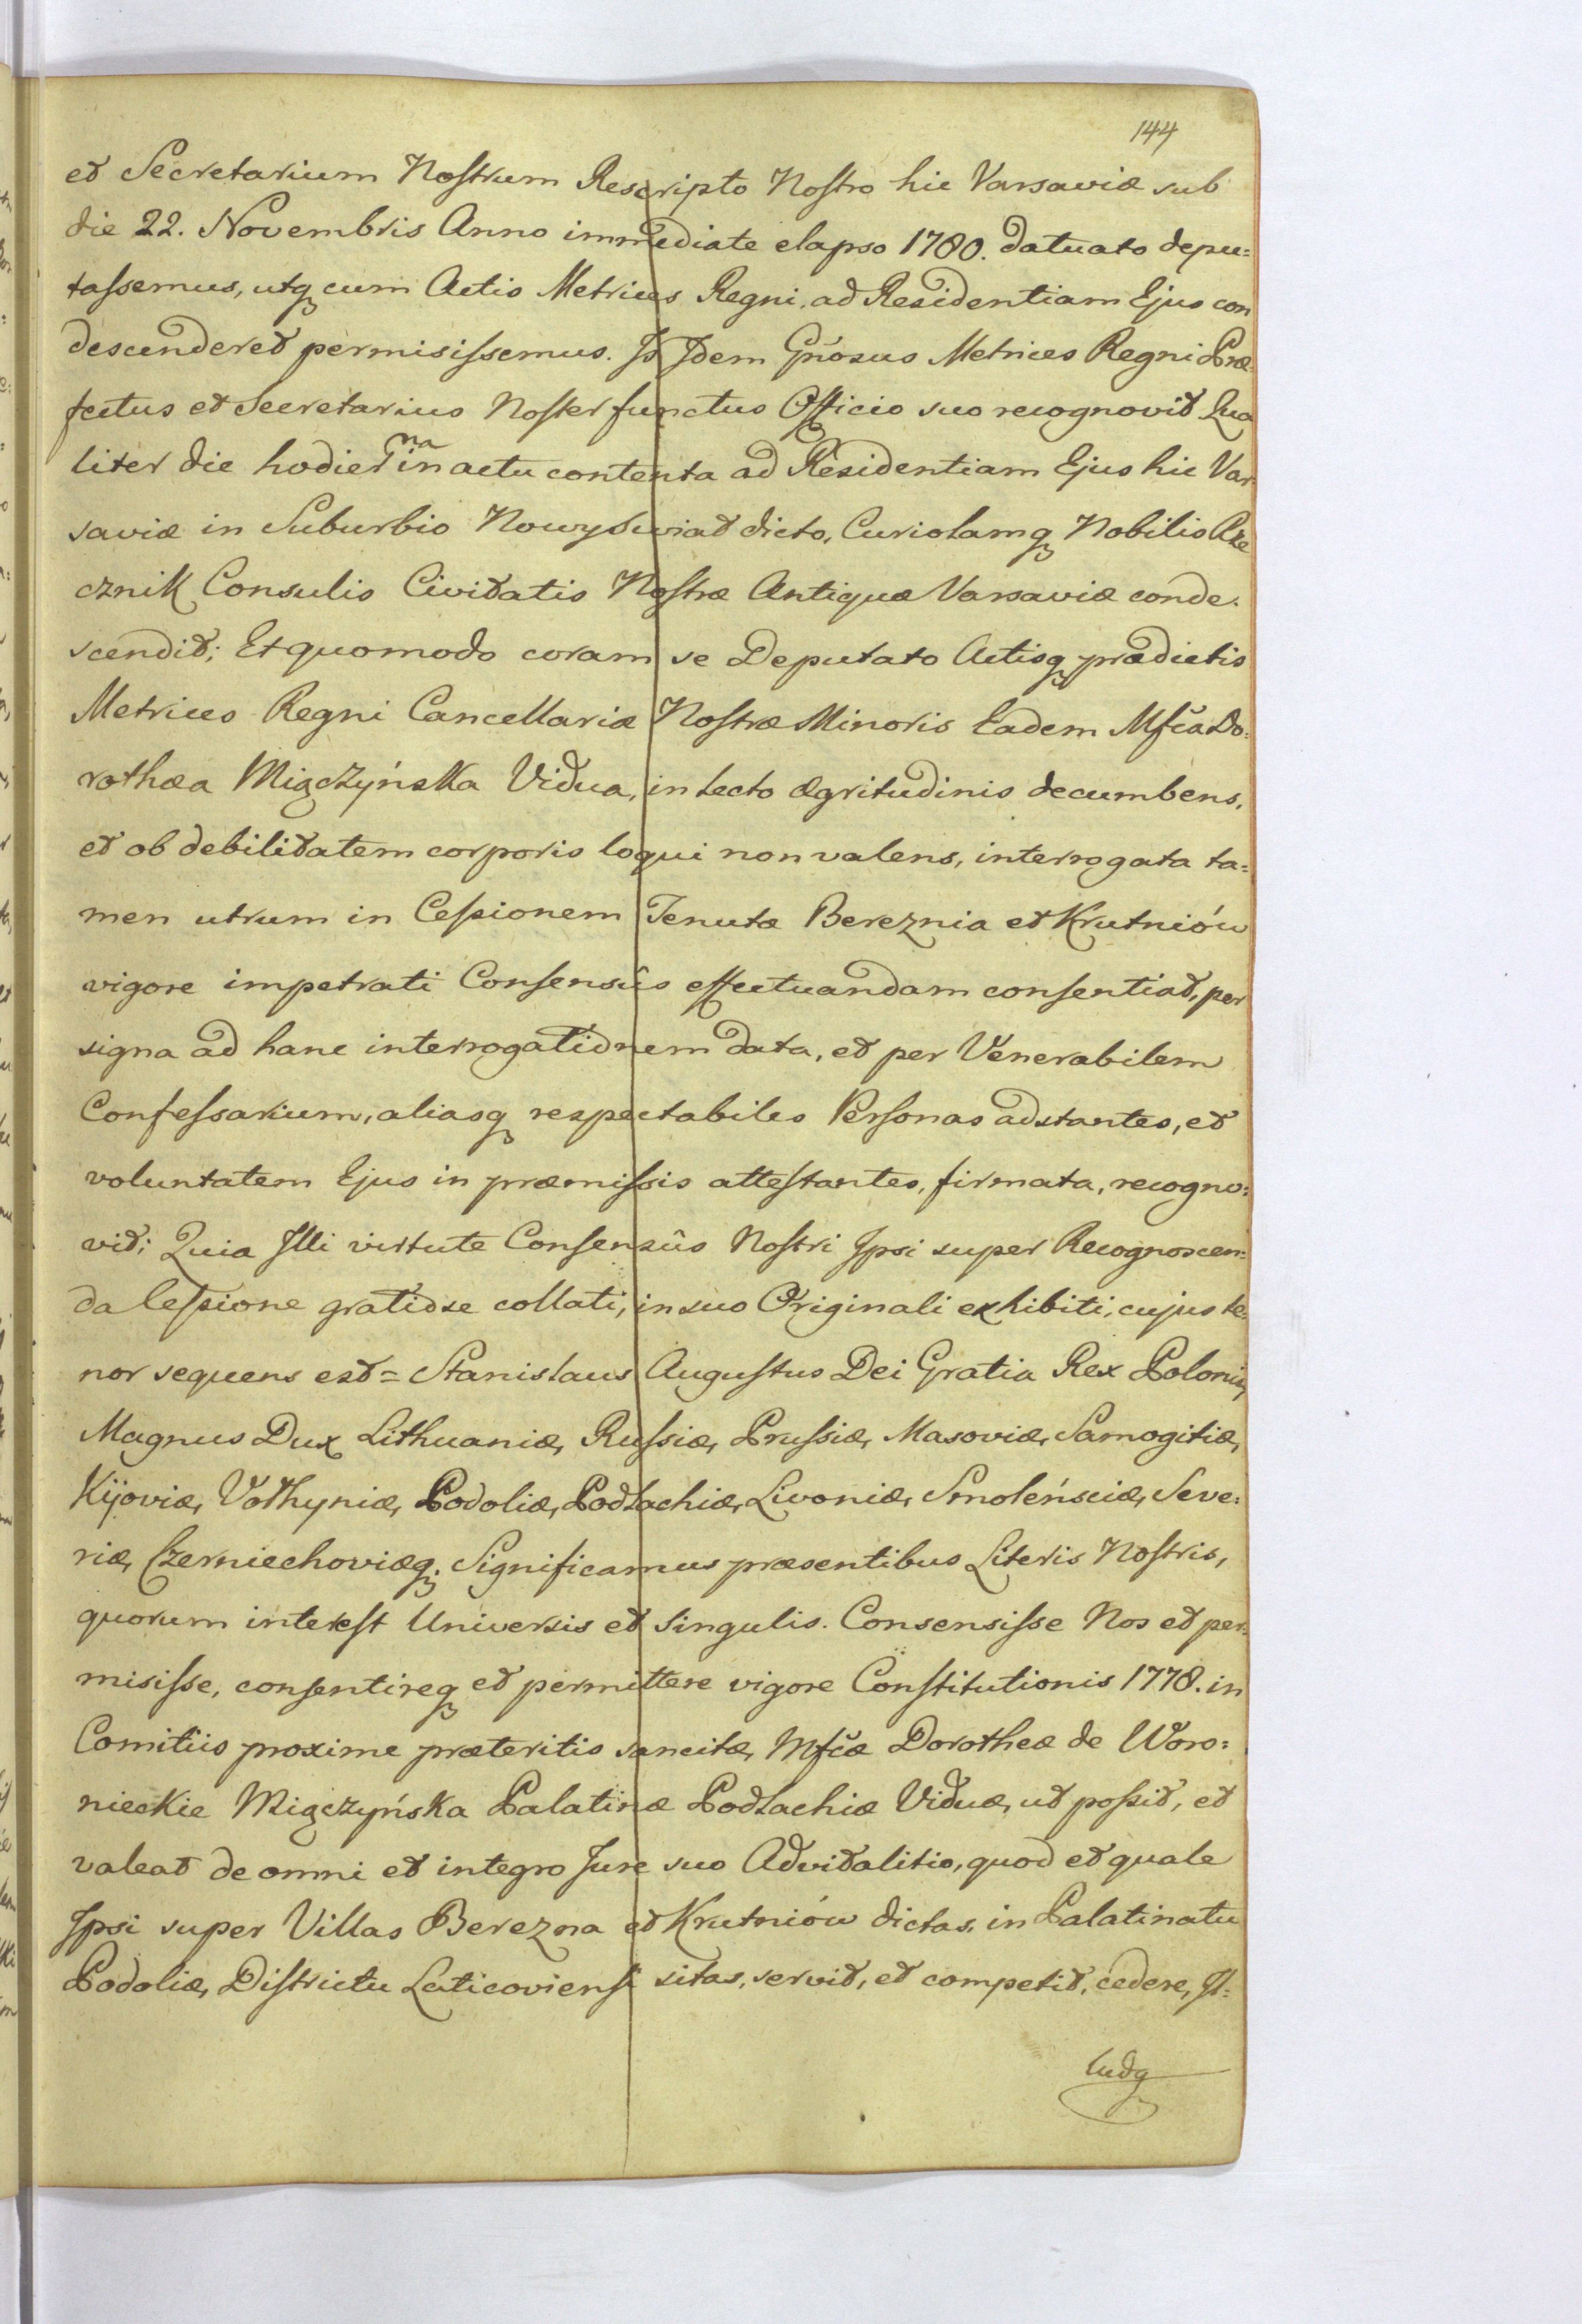 144
et Secretarium Nostrum Rescripto Nostro hic Varsaviæ sub
die 22. Novembris Anno immediate elapso 1780. datuato depu=
tassemus, utq cum Actis Metrices Regni, ad Residentiam Ejus con
descenderet permisissemus. Is Idem Gñosus Metrices Regni Præ
fectus et Secretarius Noster functus Officio suo recognovit Qua
liter die hodierna in actu contenta ad Residentiam Ejus hic Var
saviæ in Suburbio Nowy Swiat dicto, Curiolamq Nobilis Rze
cznik Consulis Civitatis Nostræ Antiquæ Varsaviæ conde.
scendit; Et quomodo coram se Deputato Actisq prædictis
Metrices Regni Cancellariæ Nostræ Minoris Eadem Mfča Do=
rothæa Miączyńska Vidua, in lecto ægritudinis decumbens,
et ob debilitatem corporis loqui non valens, interrogata ta=
men utrum in Cessionem Tenutæ Bereznia et Krutniów
vigore impetrati Consensûs effectuandam consentiat, per
signa ad hanc interrogationem data, et per Venerabilem
Confessarium, aliasq respectabiles Personas adstantes, et
voluntatem Ejus in præmissis attestantes, firmata, recogno=
vit; Quia Illi virtute Consensûs Nostri Ipsi super Recognoscen=
da Cessione gratiose collati, in suo Originali exhibiti, cujus te=
nor sequens est = Stanislaus Augustus Dei Gratia Rex Poloniæ,
Magnus Dux Lithuaniæ, Russiæ, Prussiæ, Masoviæ, Samogitiæ,
Kijoviæ, Volhyniæ, Podoliæ, Podlachiæ, Livoniæ, Smoleńsciæ, Seve=
riæ, Czerniechoviæq. Significamus præsentibus Literis Nostris,
quorum interest Universis et Singulis. Consensisse Nos et per=
misisse, consentireq et permittere vigore Constitutionis 1778. in
Comitiis proxime præteritis sancitæ, Mfčæ Dorotheæ de Woro=
nieckie Miączyńska Palatinæ Podlachiæ Viduæ, ut possit, et
valeat de omni et integro Jure suo Advitalitio, quod et quale
Ipsi super Villas Berezna et Krutniów dictas, in Palatinatu
Podoliæ, Districtu Laticoviensi sitas, servit, et competit, cedere, Il=
ludq